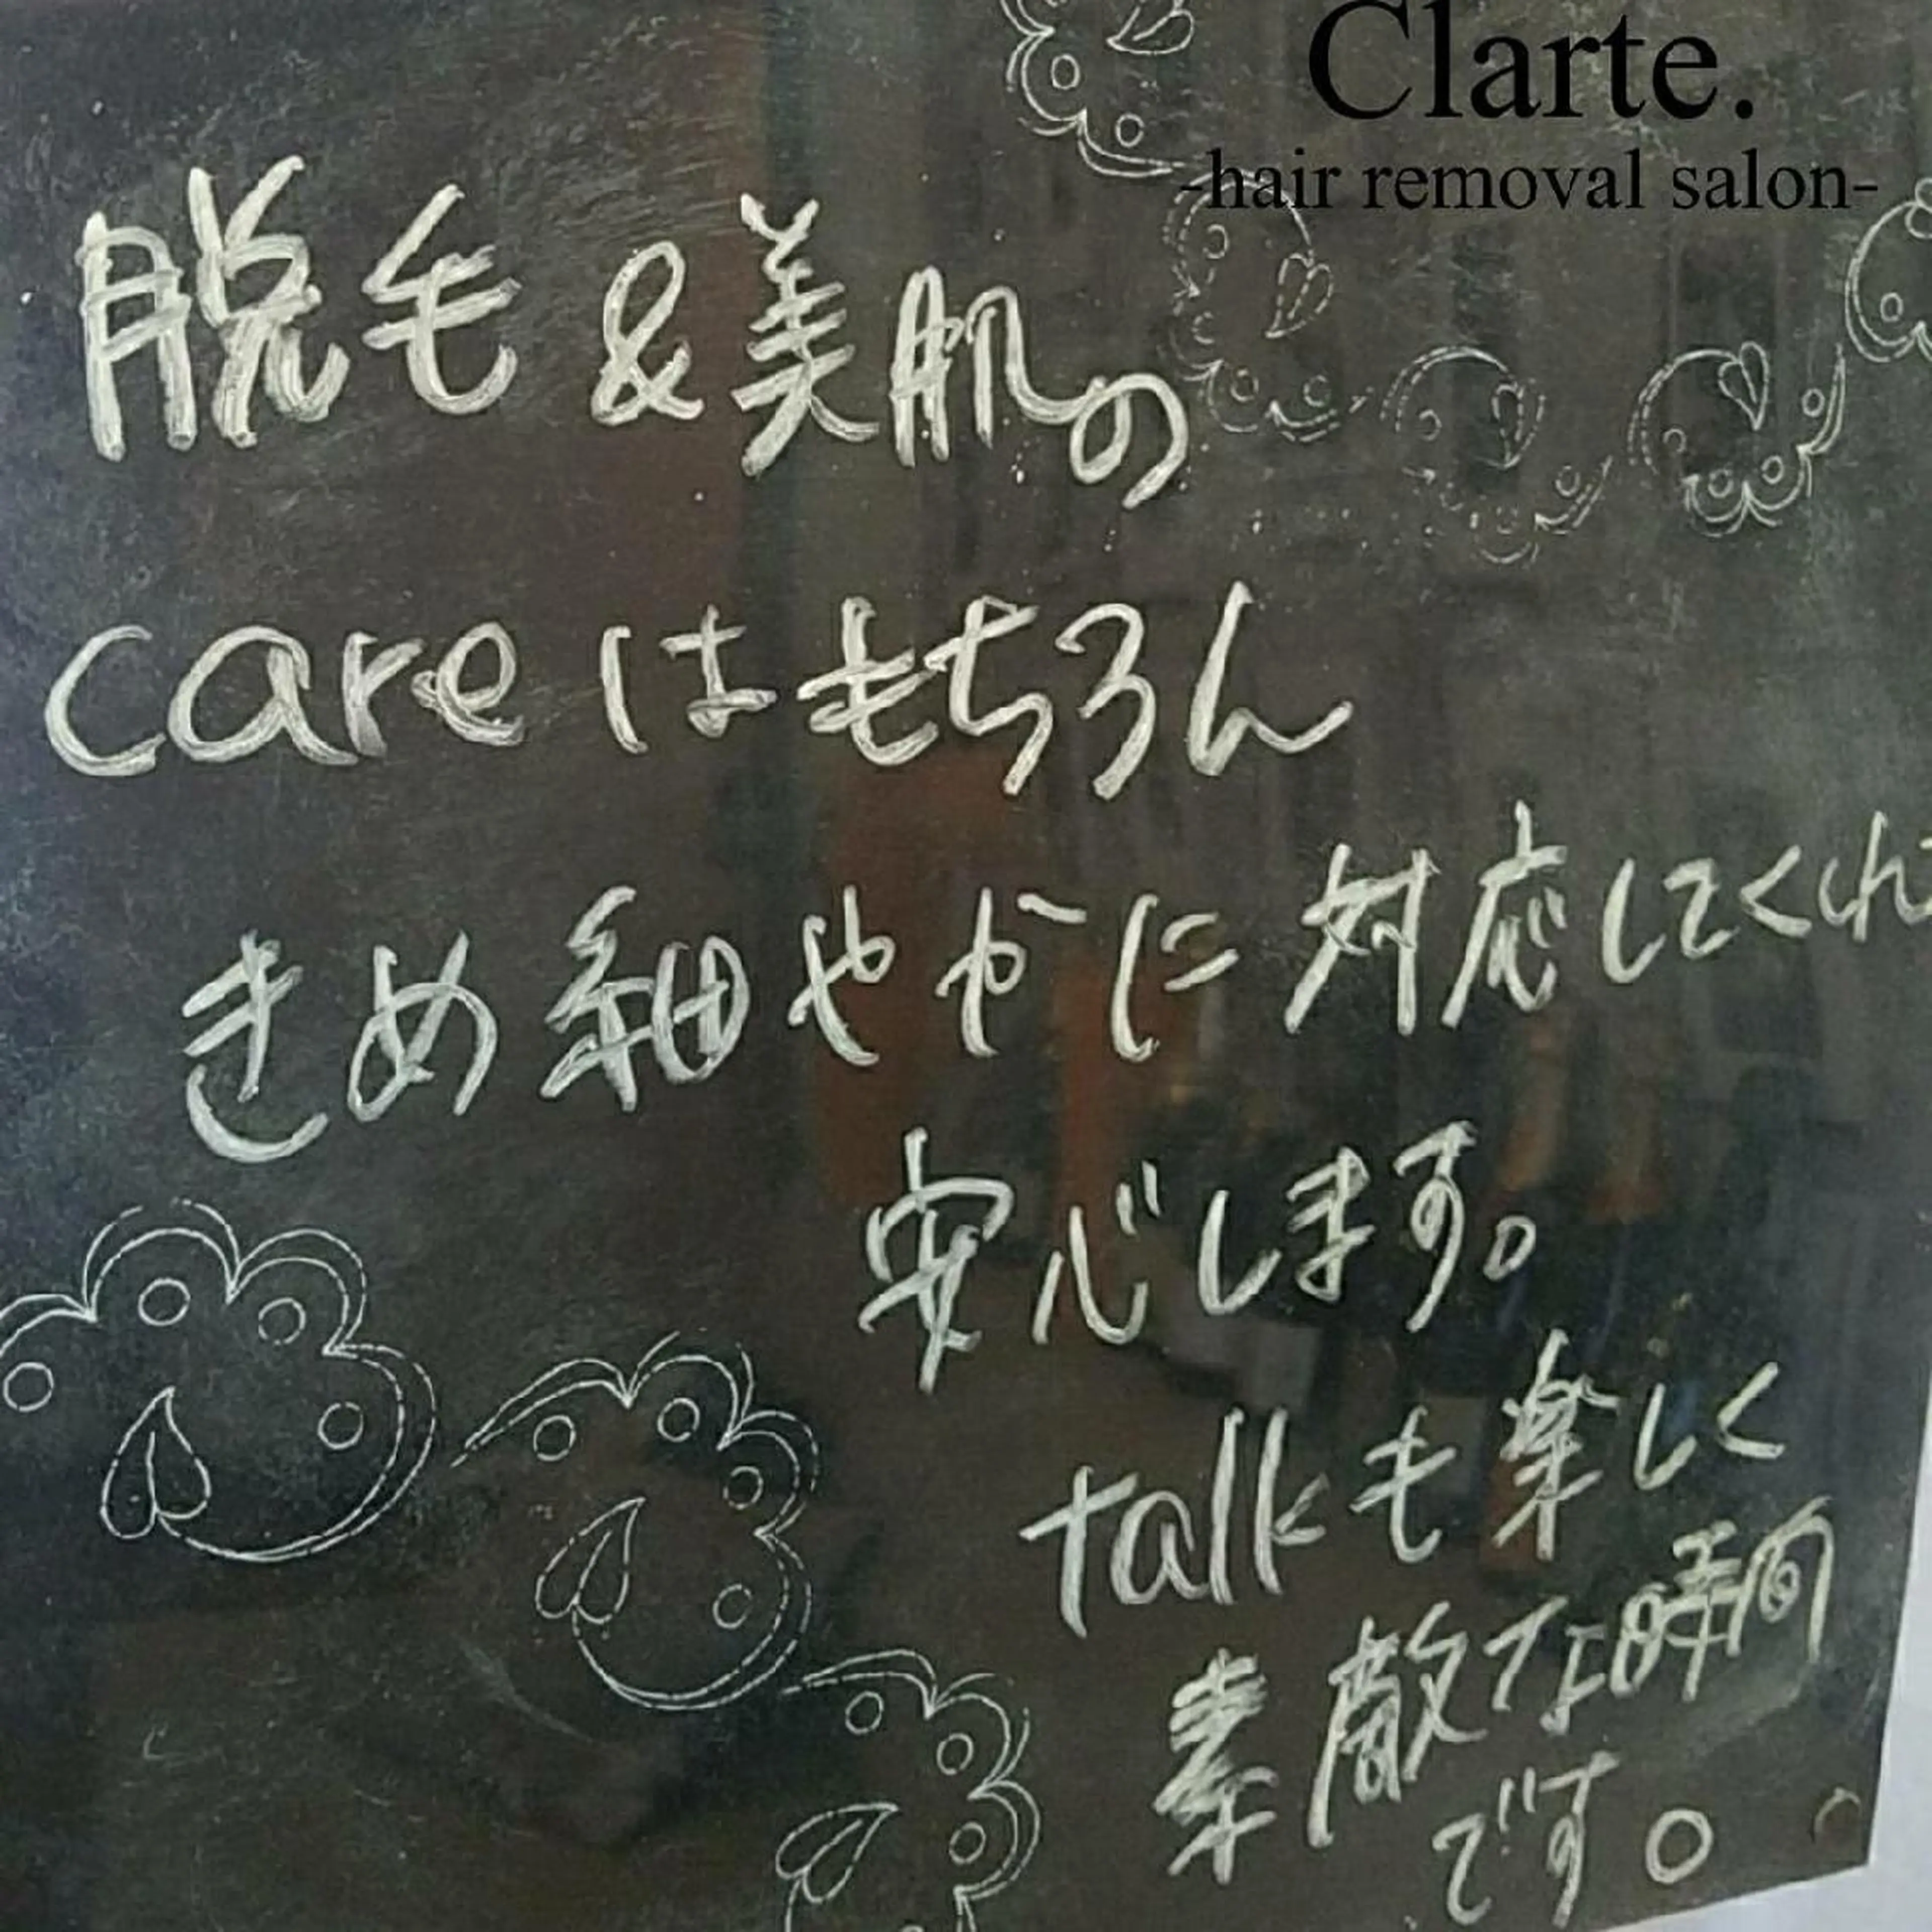 Clarte.
-hair removal salon-
脱毛&美肌の
careはもちろん
きめ細やかに対応してくれ
安心します。
talkも楽しく
素敵な時間
です。